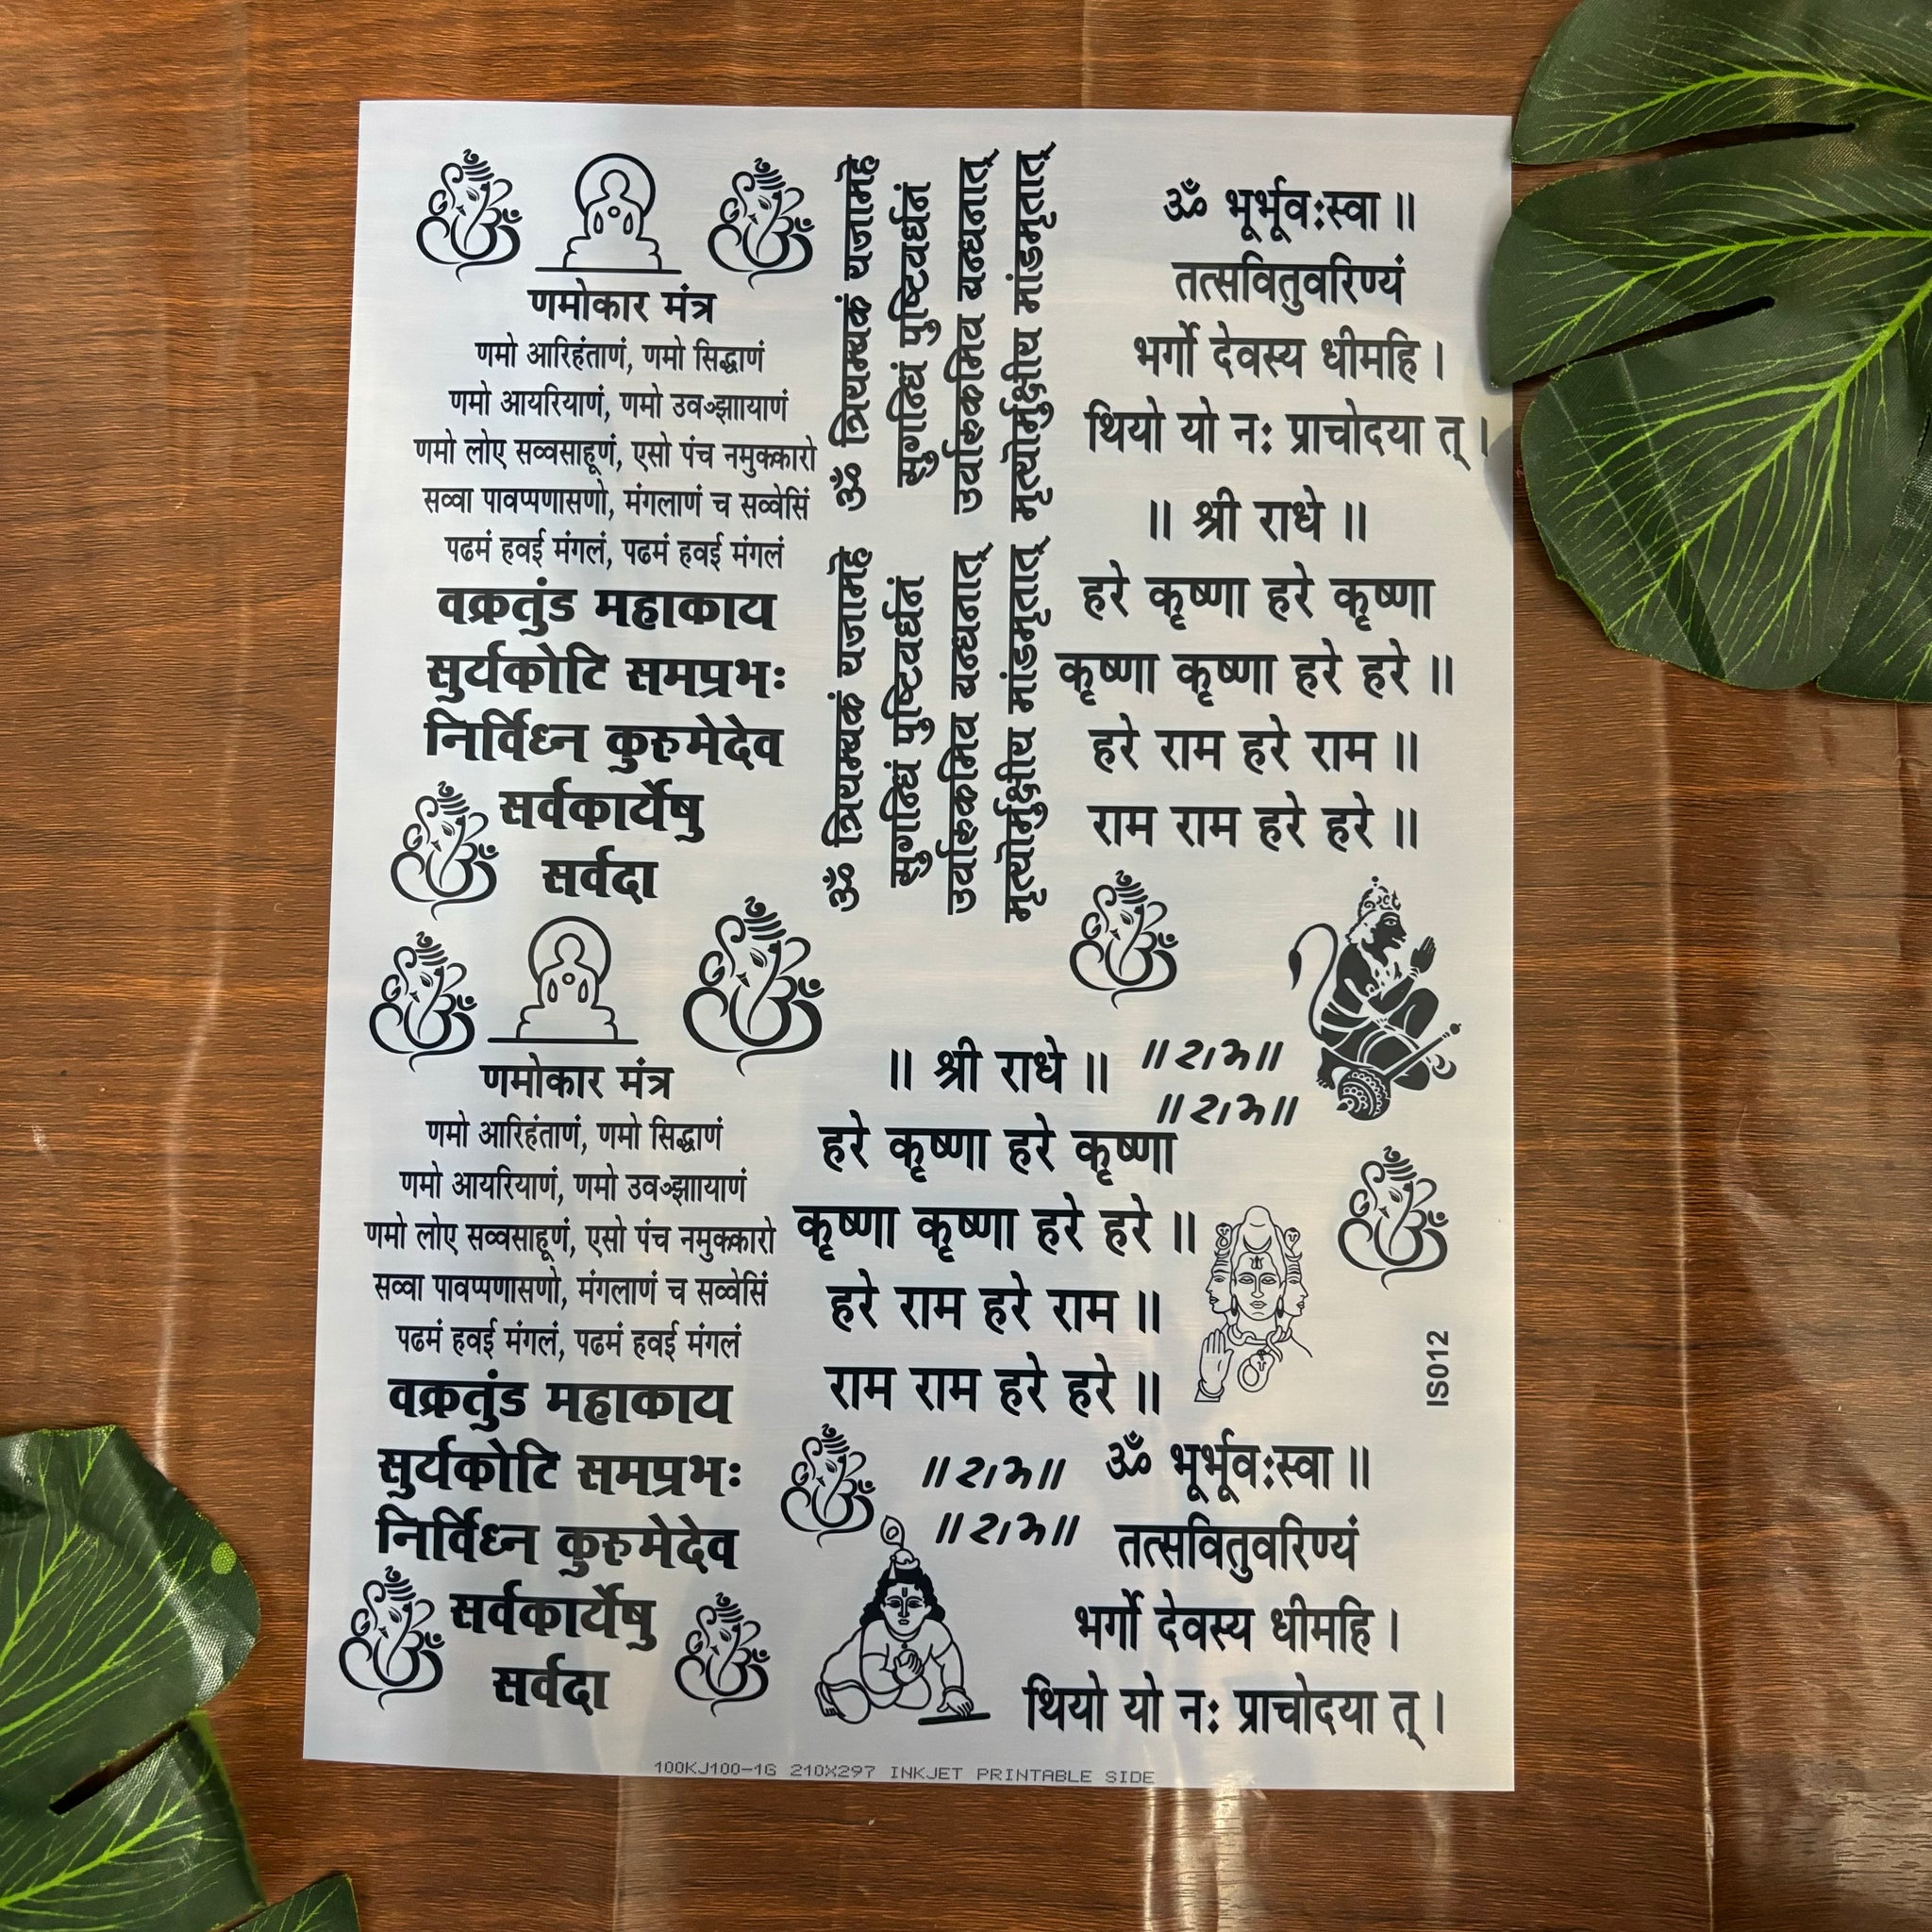 णमोकार मंत्र
णमो आरिहंताणं, णमो सिद्धाणं
णमो आयरियाणं, णमो उवज्झाायाणं
णमो लोए सव्वसाहूणं, एसो पंच नमुक्कारो
सव्वा पावप्पणासणो, मंगलाणं च सव्वेसिं
पढमं हवई मंगलं, पढमं हवई मंगलं
वक्रतुंड महाकाय
सुर्यकोटि समप्रभः
निर्विध्न कुरुमेदेव
सर्वकार्येषु
सर्वदा
ॐ त्रियम्बकं यजामहे
सुगन्धिं पुष्टिवर्धनं
उर्वारुकमिव बन्धनात्
मृत्योर्मुक्षीय मांडमृतात्
ॐ त्रियम्बकं यजामहे
सुगन्धिं पुष्टिवर्धनं
उर्वारुकमिव बन्धनात्
मृत्योर्मुक्षीय मांडमृतात्
ॐ भूर्भूवःस्वा ॥
तत्सवितुवरिण्यं
भर्गो देवस्य धीमहि ।
थियो यो नः प्राचोदया त् ।
॥ श्री राधे ॥
हरे कृष्णा हरे कृष्णा
कृष्णा कृष्णा हरे हरे ॥
हरे राम हरे राम ॥
राम राम हरे हरे ॥
णमोकार मंत्र
णमो आरिहंताणं, णमो सिद्धाणं
णमो आयरियाणं, णमो उवज्झाायाणं
णमो लोए सव्वसाहूणं, एसो पंच नमुक्कारो
सव्वा पावप्पणासणो, मंगलाणं च सव्वेसिं
पढमं हवई मंगलं, पढमं हवई मंगलं
वक्रतुंड महाकाय
सुर्यकोटि समप्रभः
निर्विध्न कुरुमेदेव
सर्वकार्येषु
सर्वदा
॥ श्री राधे ॥
हरे कृष्णा हरे कृष्णा
कृष्णा कृष्णा हरे हरे ॥
हरे राम हरे राम ॥
राम राम हरे हरे ॥
॥राम॥
॥राम॥
IS012
॥राम॥
॥राम॥
ॐ भूर्भूवःस्वा ॥
तत्सवितुवरिण्यं
भर्गो देवस्य धीमहि ।
थियो यो नः प्राचोदया त् ।
100KJ100-1G 210X297 INKJET PRINTABLE SIDE